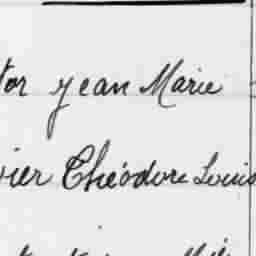 tor Jean Marie
vier Théodore Louis